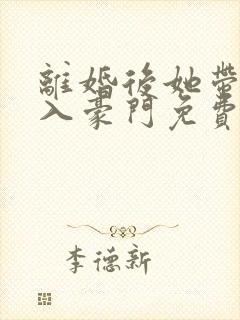 離婚後她帶
入豪門免費
李德新